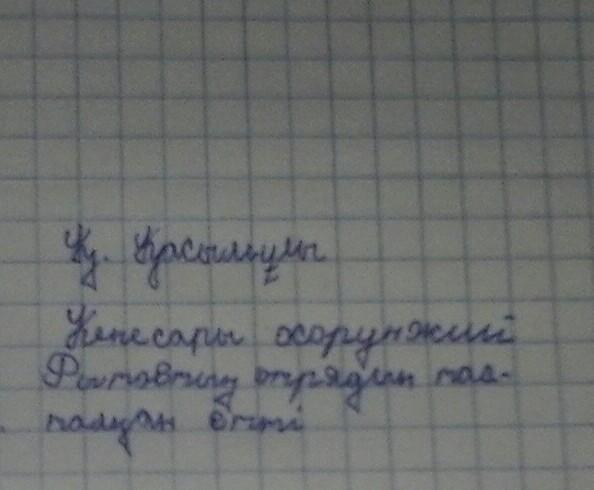 Қ. Қасымұлы
Кенесары хорунжий
Рытовтың отрядын тас-
талқан етті